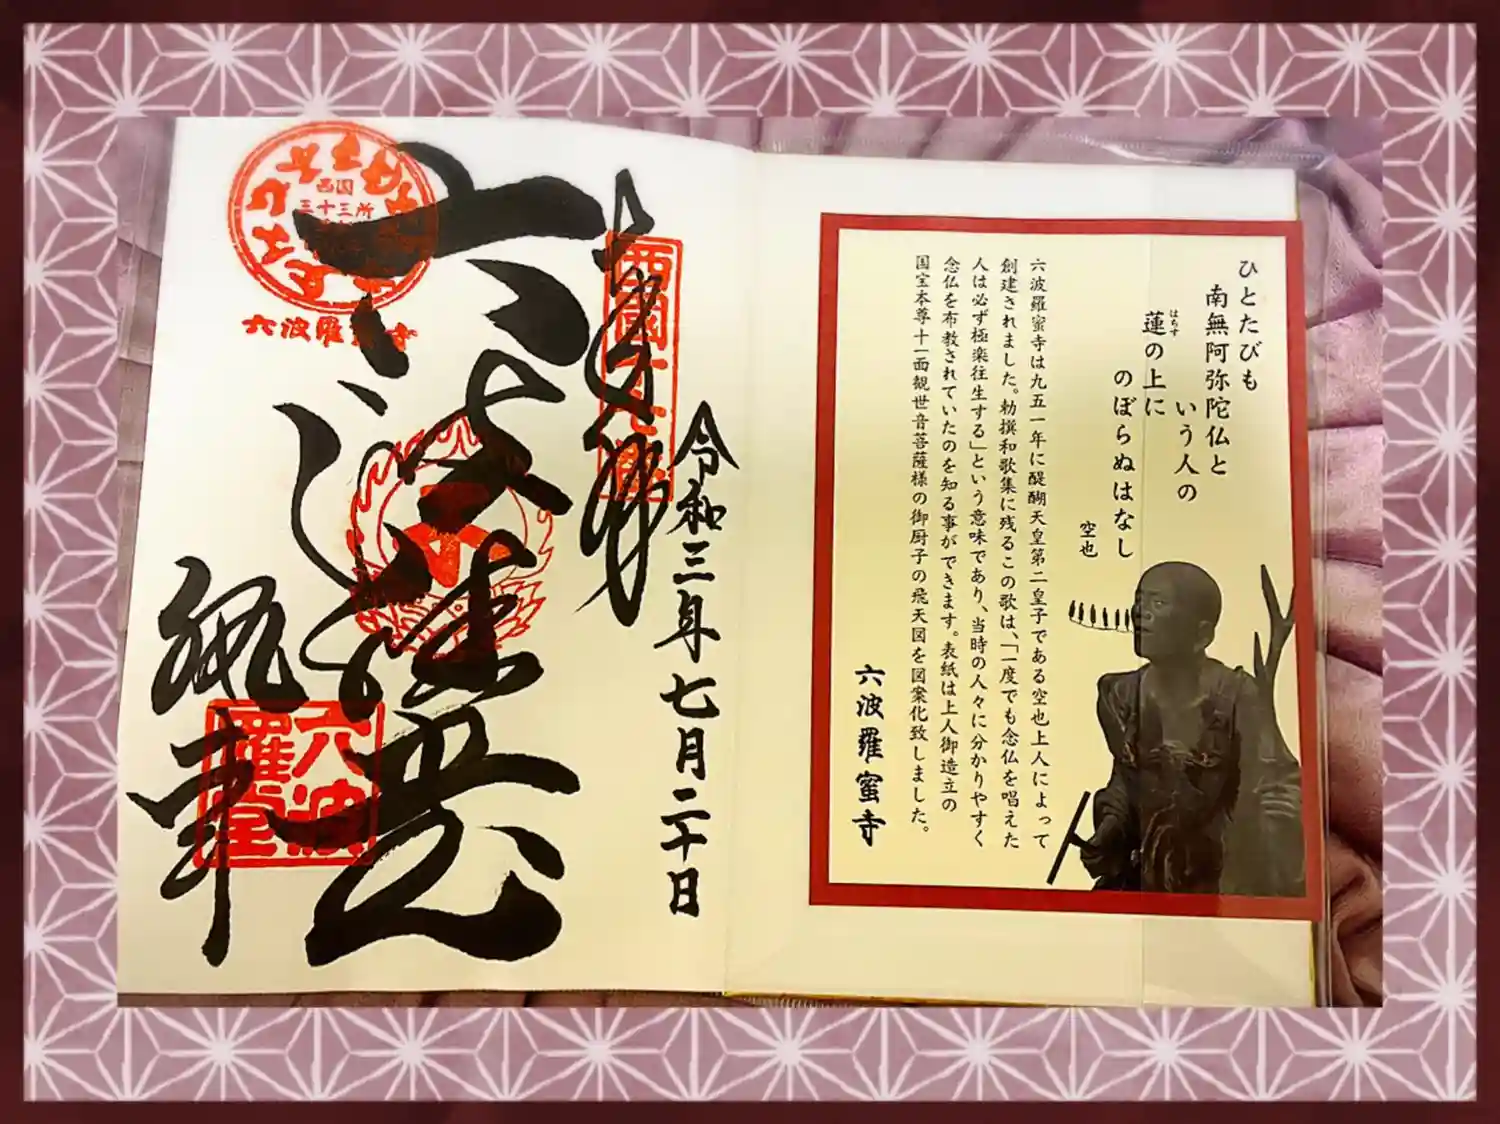 ひとたびも
南無阿弥陀仏と
いう人の
蓮の上に
はちす
のぼらぬはなし
空也
六波羅蜜寺は九五一年に醍醐天皇第二皇子である空也上人によって
創建されました。勅撰和歌集に残るこの歌は、「一度でも念仏を唱えた
人は必ず極楽往生する」という意味であり、当時の人々に分かりやすく
念仏を布教されていたのを知る事ができます。表紙は上人御造立の
国宝本尊十一面観世音菩薩様の御厨子の飛天図を図案化致しました。
六波羅蜜寺
令和三年七月二十日
奉拝
西國十七番
六波羅堂
西国
三十三所
六波羅蜜寺